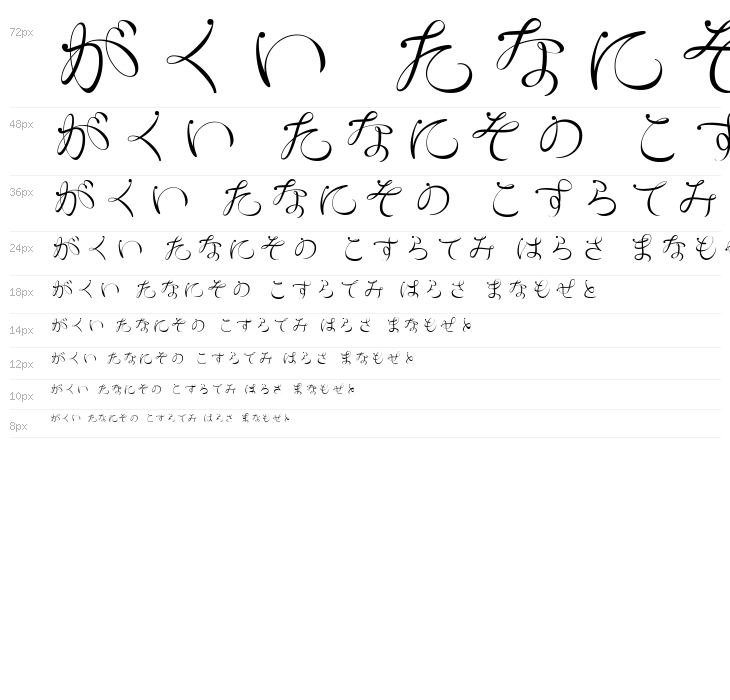 72px がくい たなにそ
48px がくい たなにその こす
36px がくい たなにその こすらてみ
24px がくい たなにその こすらてみ はらさ まなも
18px がくい たなにその こすらてみ はらさ まなもせと
14px がくい たなにその こすらてみ はらさ まなもせと
12px がくい たなにその こすらてみ はらさ まなもせと
10px がくい たなにその こすらてみ はらさ まなもせと
8px がくい たなにその こすらてみ はらさ まなもせと